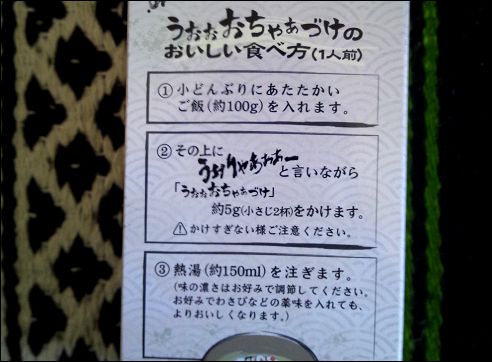 うぉぉおちゃぁづけの
おいしい食べ方(1人前)
①小どんぶりにあたたかい
ご飯(約100g)を入れます。
②その上に
うぉりゃあぁぁー と言いながら
「うぉぉおちゃぁづけ」
約5g(小さじ2杯)をかけます。
⚠かけすぎない様ご注意ください。
③熱湯(約150ml)を注ぎます。
(味の濃さはお好みで調節してください。
お好みでわさびなどの薬味を入れても、
よりおいしくなります。)